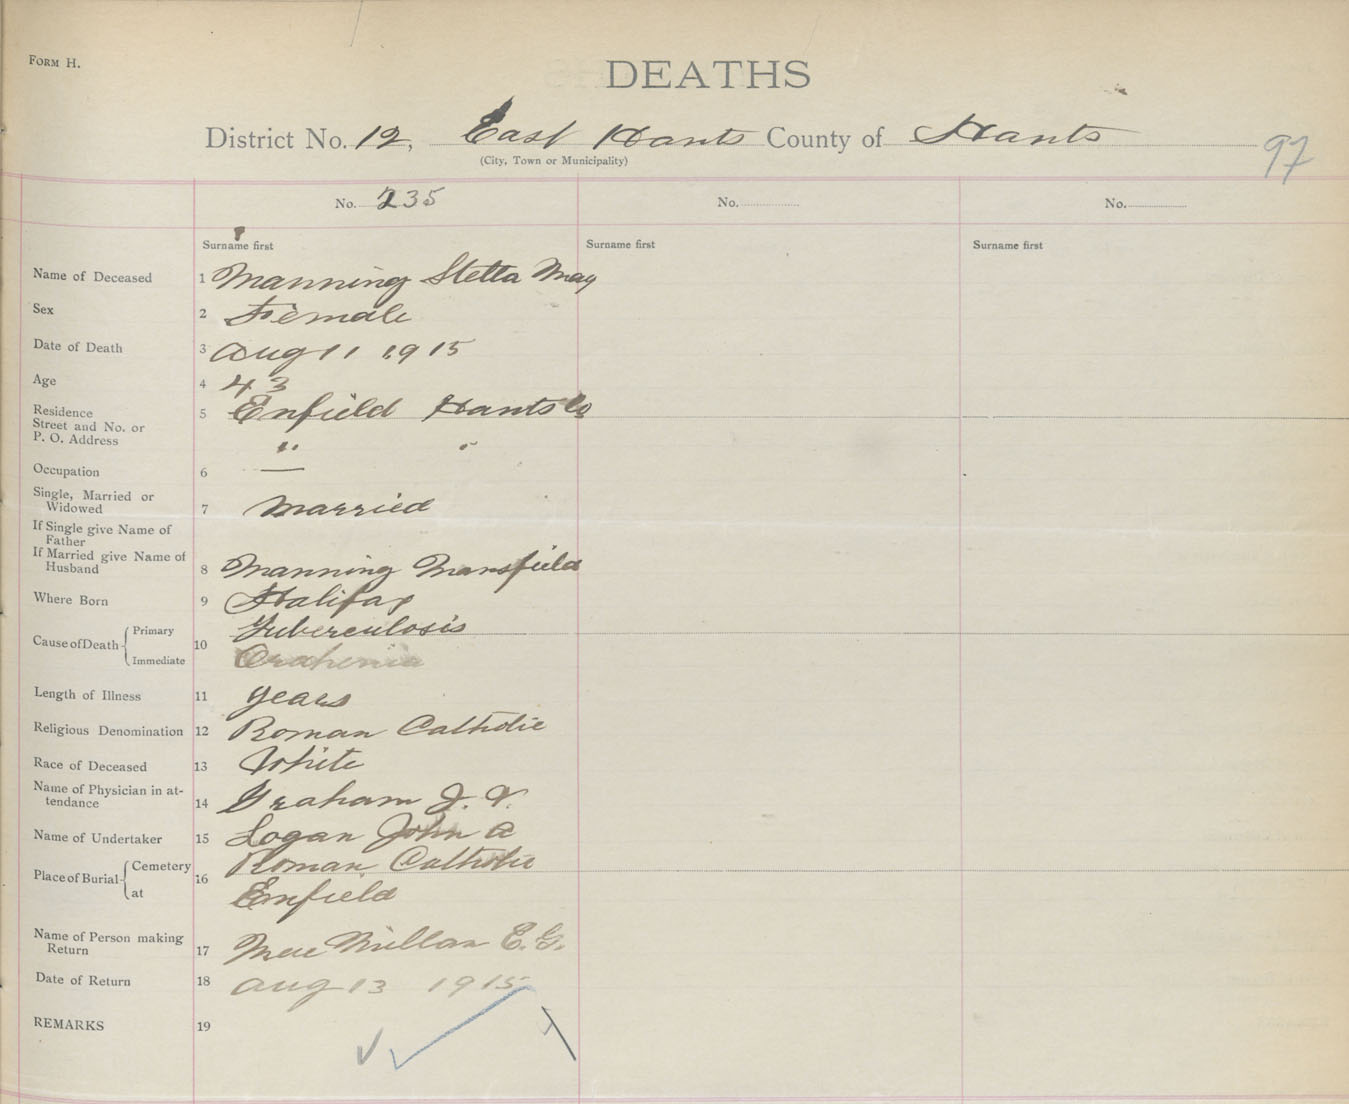 FORM H.
DEATHS
District No. 12, East Hants County of Hants
(City, Town or Municipality)
97
No. 235 No. No.
Surname first Surname first Surname first
Name of Deceased 1 Manning Stella May
Sex 2 Female
Date of Death 3 Aug 11 1915
Age 4 43
Residence
Street and No. or
P. O. Address 5 Enfield Hants Co
" "
Occupation 6 —
Single, Married or
Widowed 7 Married
If Single give Name of
Father
If Married give Name of
Husband 8 Manning Mansfield
Where Born 9 Halifax
Cause of Death Primary 10 Tuberculosis
Immediate
Length of Illness 11 years
Religious Denomination 12 Roman Catholic
Race of Deceased 13 White
Name of Physician in at-
tendance 14 Graham J. V.
Name of Undertaker 15 Logan John A
Place of Burial Cemetery 16 Roman Catholic
at Enfield
Name of Person making
Return 17 MacMillan E. G.
Date of Return 18 Aug 13 1915
REMARKS 19